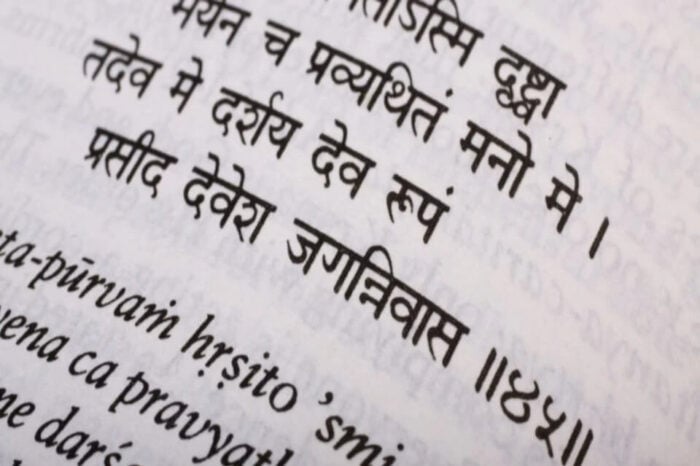 दृष्ट्वा
भयेन च प्रव्यथितं मनो मे ।
तदेव मे दर्शय देव रूपं
प्रसीद देवेश जगन्निवास ॥४५॥
ta-pūrvaṁ hṛṣito ’smi
ena ca pravyath
me darś